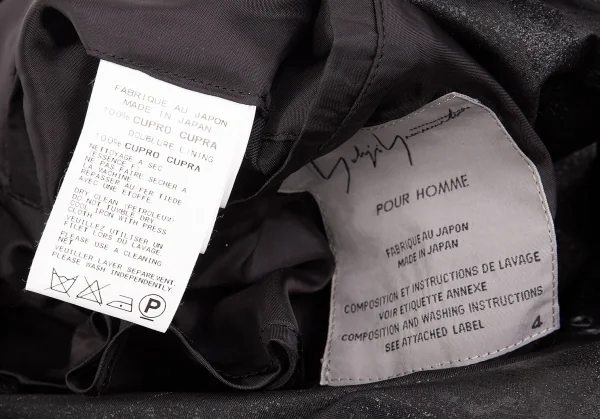 FABRIQUE AU JAPON
MADE IN JAPAN
100% CUPRO CUPRA
DOUBLURE LINING
100% CUPRO CUPRA
NETTOYAGE A SEC
(ESSENCE)
NE PAS FAIRE SECHER A
LA MACHINE
REPASSER AU FER TIEDE
AVEC UNE ETOFFE.
DRY CLEAN (PETROLEUM)
DO NOT TUMBLE DRY.
COOL IRON WITH PRESS
CLOTH.
VEUILLEZ UTILISER UN
FILET LORS DU LAVAGE.
PLEASE USE A CLEANING
NET
VEUILLER LAVER SEPAREMENT.
PLEASE WASH INDEPENDENTLY.
P
Yohji Yamamoto
POUR HOMME
FABRIQUE AU JAPON
MADE IN JAPAN
COMPOSITION ET INSTRUCTIONS DE LAVAGE
VOIR ETIQUETTE ANNEXE
COMPOSITION AND WASHING INSTRUCTIONS
SEE ATTACHED LABEL
4